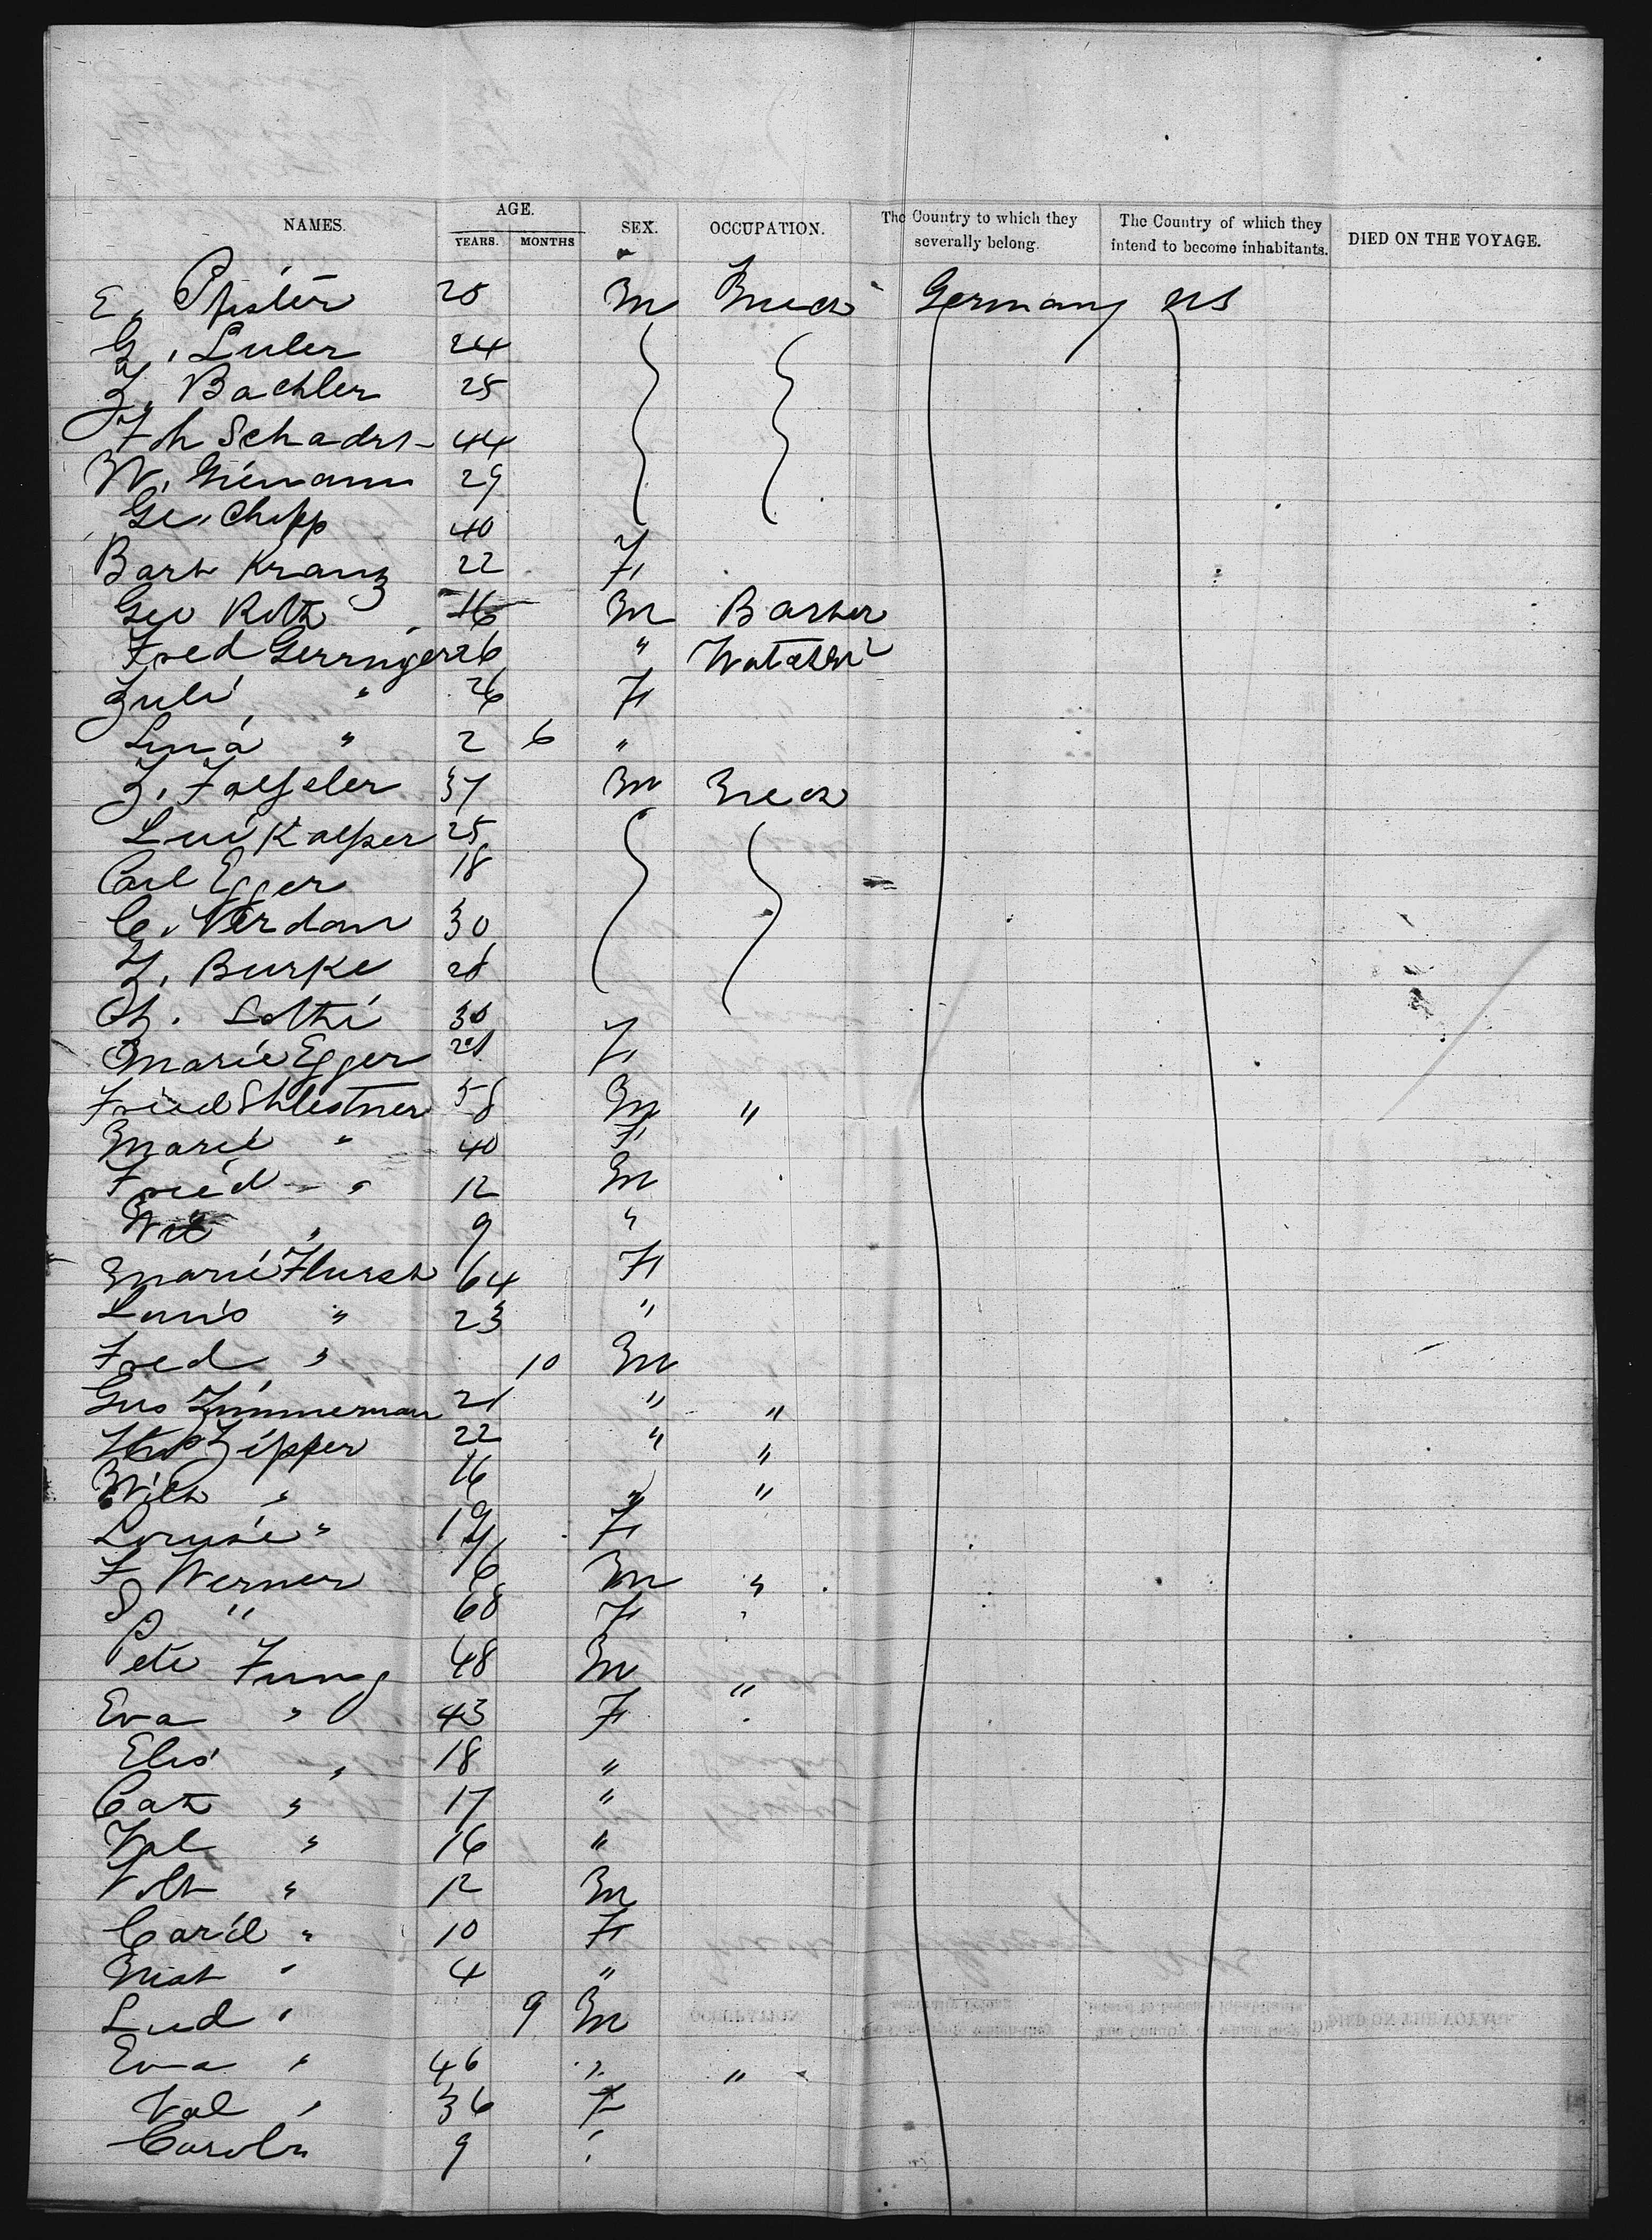 NAMES. AGE. YEARS. MONTHS SEX. OCCUPATION. The Country to which they severally belong. The Country of which they intend to become inhabitants. DIED ON THE VOYAGE.
E. Pfister M Mech Germany US
G. Luler 24
J. Bachler 25
Joh 44
W. 29
Ge. Chopp 40
Barb Kranz 22 F
Geo Roth 16 M Barber
Fred Gerringer 26 "
Juli " 26 F
Lina " 2 6 "
J. 37 M Mech
Loui 25
Carl Egger 18
C. Verdan 30
J. Burke
Ch. Lothi 30
Marie Egger 21 F
Fried Shlestner 58 M "
Marie " 40 F
Fried " 12 M
" 9 "
Marie Hursh 64 F
Louis " 23 "
Fred " 10 M
Gus Zimmerman 21 " "
Zipper 22 " "
Wilh " 16 " "
Louise " 19 F
F Werner M "
S " 68 F
Pete Jung 48 M "
Eva " 43 F
Elis " 18 "
Cath " 17 "
Val " 16 "
" 12 M
" 10 F
" 4 "
Lud " 9 M
Eva " 46 " "
Val " 36 F
Carolin 9 "